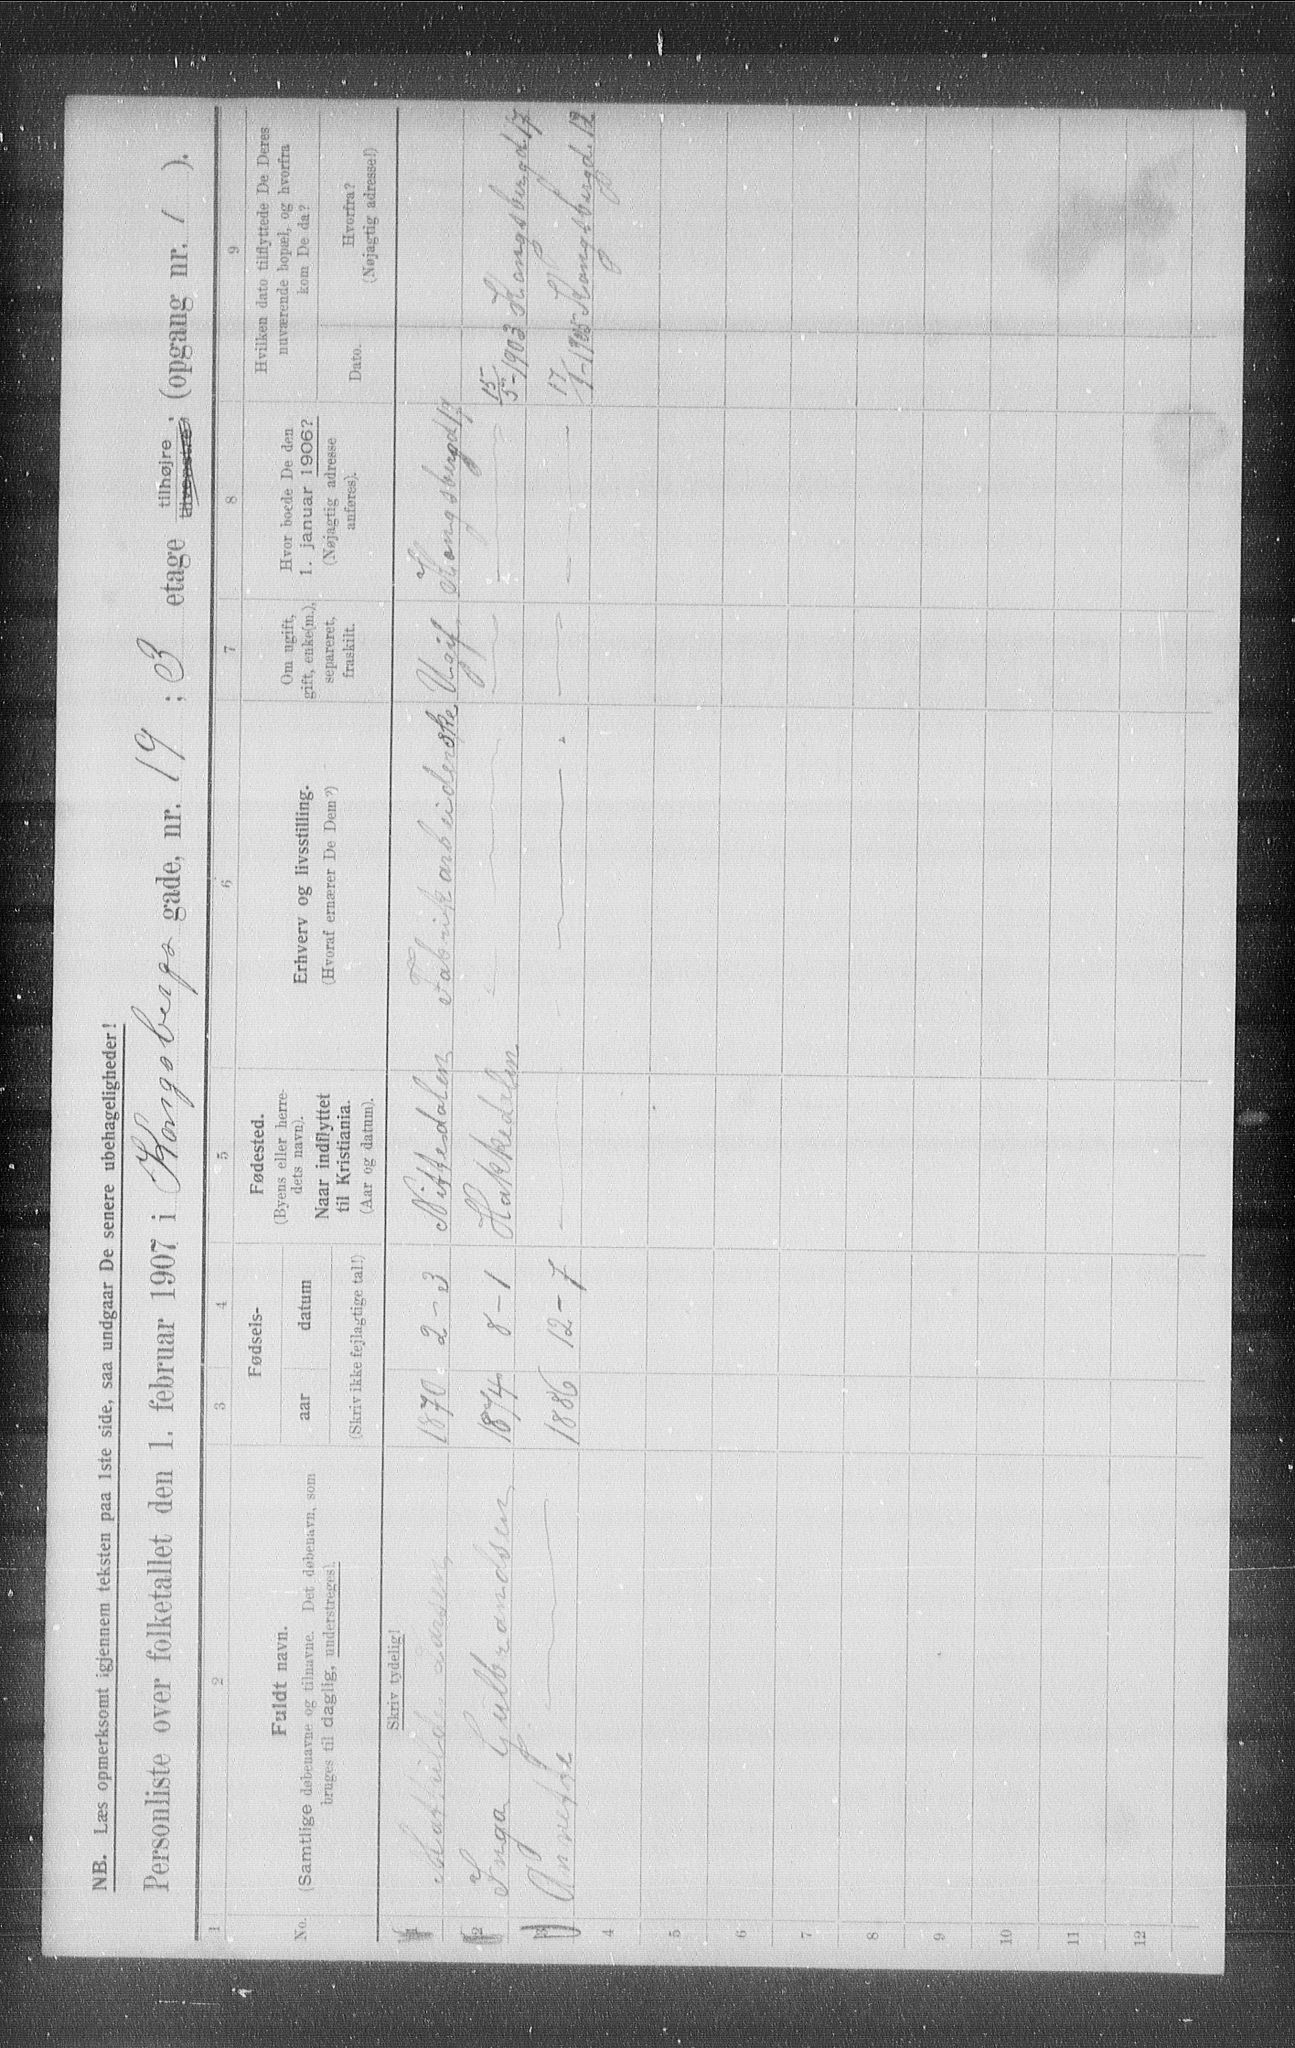 NB. Læs opmerksomt igjennem teksten paa 1ste side, saa undgaar De senere ubehageligheder!
Personliste over folketallet den 1. februar 1907 i Kongsbergs gade, nr. 19 ; 3 etage tilhøjre, tilvenstre, (opgang nr. 1 ).
1 2 3 4 5 6 7 8 9
No.
Fuldt navn.
(Samtlige døbenavne og tilnavne. Det døbenavn, som
bruges til daglig, understreges).
Fødsels-
aar datum
(Skriv ikke fejlagtige tal!)
Fødested.
(Byens eller herre-
dets navn).
Naar indflyttet
til Kristiania.
(Aar og datum).
Erhverv og livsstilling.
(Hvoraf ernærer De Dem?)
Om ugift,
gift, enke(m.),
separeret,
fraskilt.
Hvor boede De den
1. januar 1906?
(Nøjagtig adresse
anføres).
Hvilken dato tilflyttede De Deres
nuværende bopæl, og hvorfra
kom De da?
Dato.
Hvorfra?
(Nøjagtig adresse!)
Skriv tydelig!
1 Mathilde Larsen 1870 2-3 Nittedalen Fabrikarbeiderske Ugif. Kongsbergd 17
2 Inga Gulbrandsen 1874 8-1 Hakkedalen — — — 15/5-1903 Kongsbergd. 17
3 Annette — 1886 12-7 — — — — 17/9-1905 Kongsbergd. 12
4
5
6
7
8
9
10
11
12